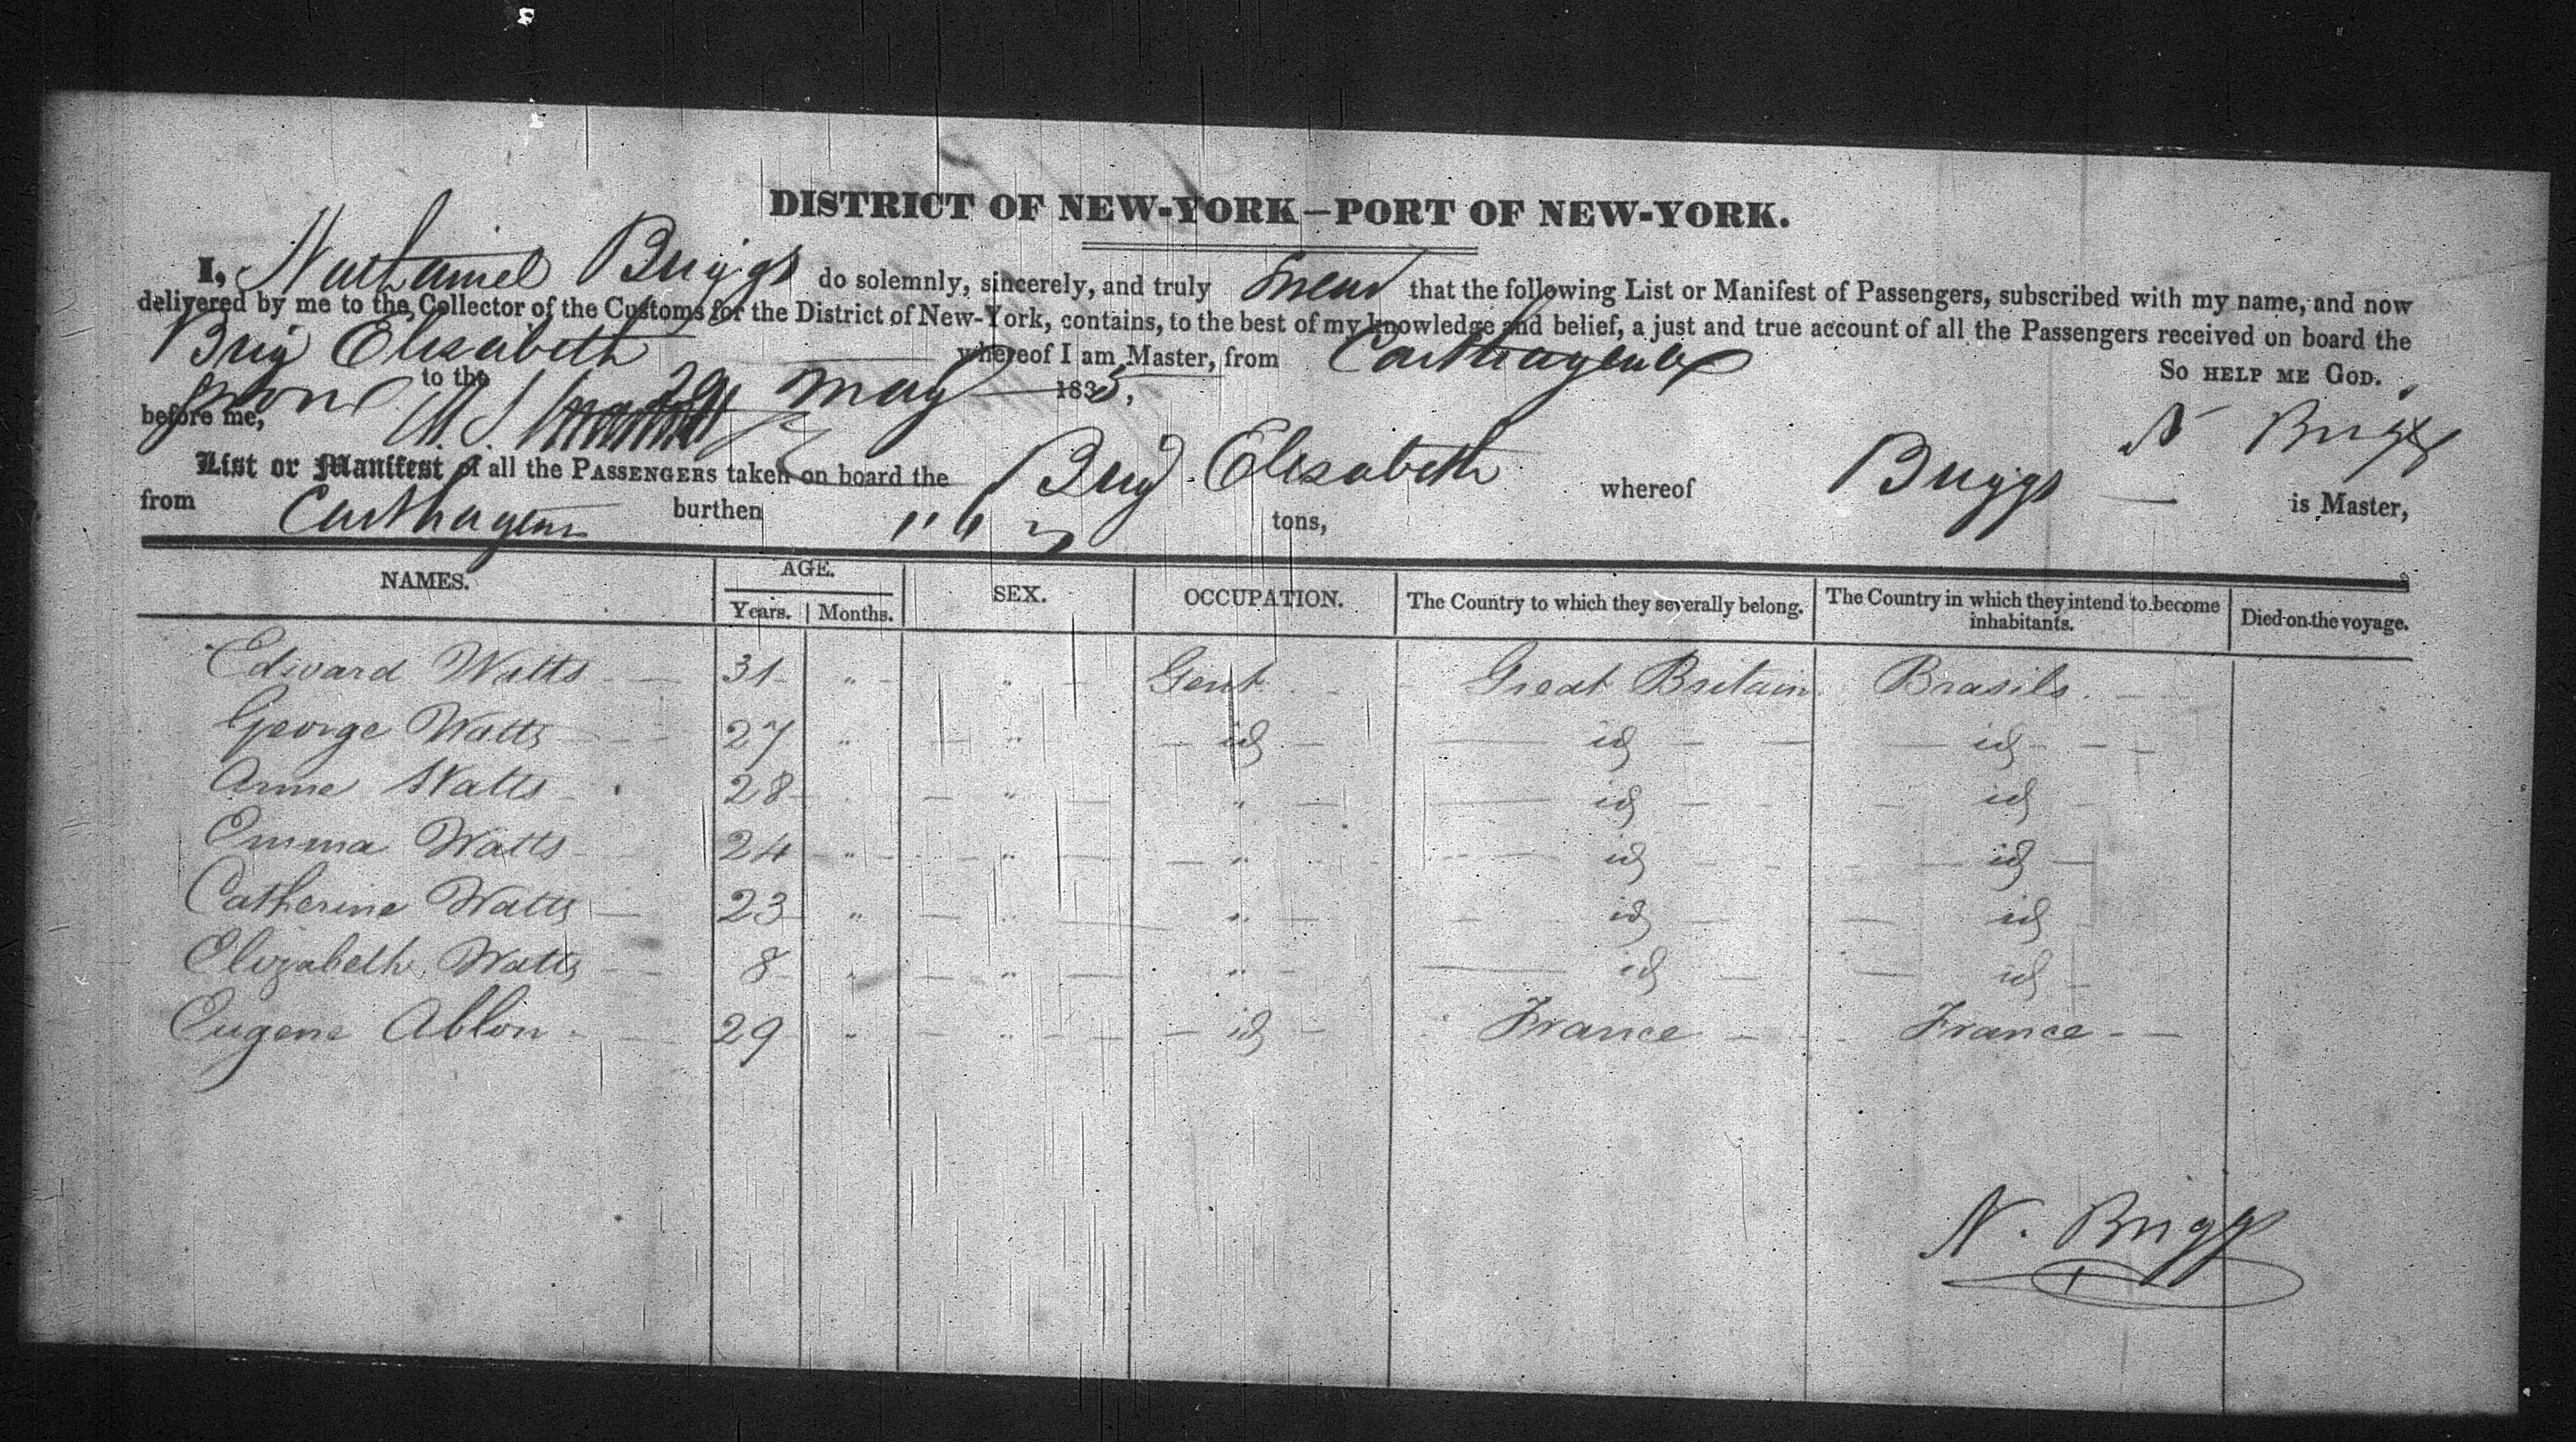 DISTRICT OF NEW-YORK—PORT OF NEW-YORK.
I, Nathaniel Briggs do solemnly, sincerely, and truly Swear that the following List or Manifest of Passengers, subscribed with my name, and now
delivered by me to the Collector of the Customs for the District of New-York, contains, to the best of my knowledge and belief, a just and true account of all the Passengers received on board the
Brig Elisabeth whereof I am Master, from Carthagena
Sworn to the 29 May 1835, So HELP ME GOD.
before me, N Briggs
List or Manifest of all the PASSENGERS taken on board the Brig Elisabeth whereof Briggs is Master,
from Carthagena burthen tons,
NAMES. AGE. SEX. OCCUPATION. The Country to which they severally belong. The Country in which they intend to become inhabitants. Died on the voyage.
Years. Months.
Edward Watts 31 " " Gent Great Britain Brasils.
George Watts 27 " " id id id
Anne Watts 28 " " id id
Emma Watts 24 " " " id id
Catherine Watts 23 " " " id id
Elizabeth Watts 8 " " " id id
Eugene Ablon 29 " " id France France
N. Briggs